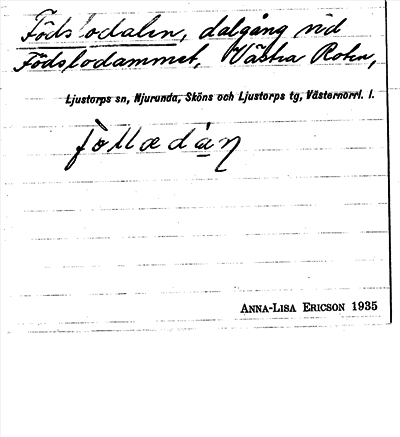 Födsbodalen, dalgång vid
Födsbodammet, Västra Roten,
Ljustorps sn, Njurunda, Sköns och Ljustorps tg, Västernorrl. l.
ANNA-LISA ERICSON 1935